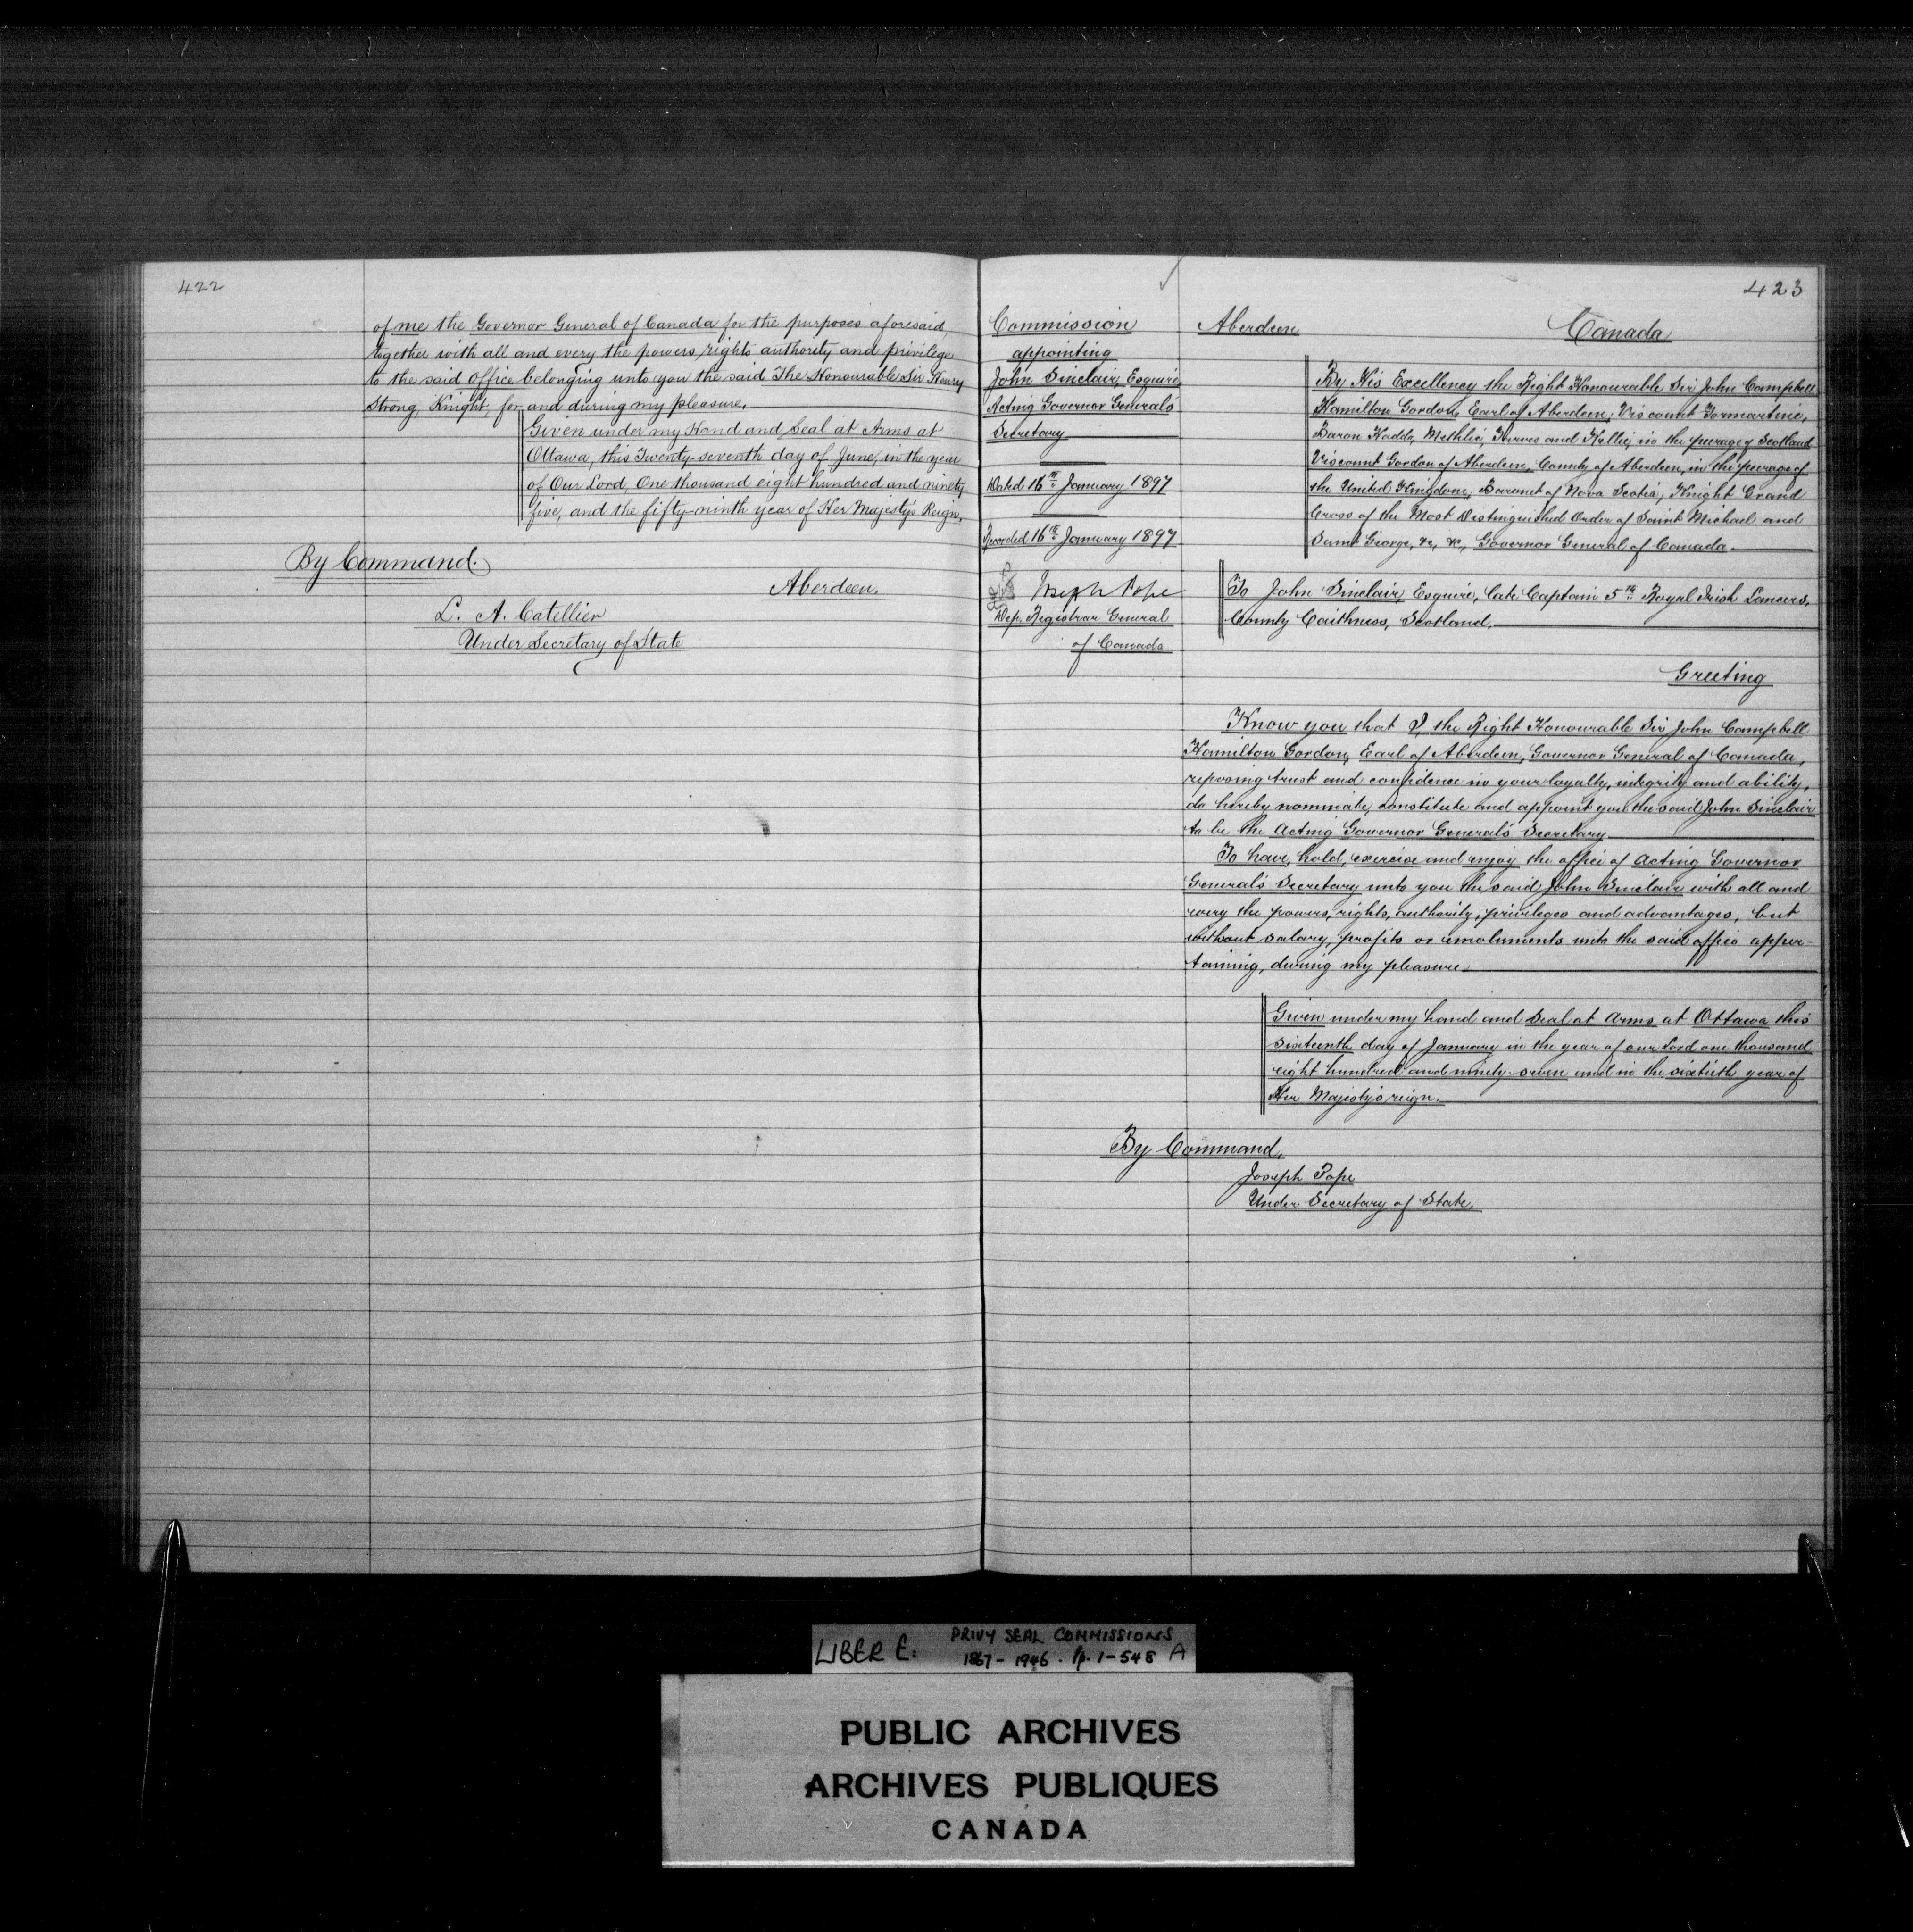 422
of me the Governor General of Canada for the purposes aforesaid,
together with all and every the powers, rights authority and privilege
to the said office belonging unto you the said The Honourable Sir Henry
Strong, Knight, for and during my pleasure.
Given under my Hand and Seal at Arms at
Ottawa, this Twenty-seventh day of June, in the year
of Our Lord, One thousand eight hundred and ninety-
five, and the fifty-ninth year of Her Majesty's Reign.
By Command.
Aberdeen.
L. A. Catellier
Under Secretary of State
423
Commission
appointing
John Sinclair, Esquire
Acting Governor General's
Secretary
Dated 16th January 1897
Recorded 16th January 1897
Joseph Pope
Dep. Registrar General
of Canada
Aberdeen
Canada
By His Excellency the Right Honourable Sir John Campbell
Hamilton Gordon, Earl of Aberdeen; Viscount Formartine,
Baron Haddo, Methlic, Tarves and Kellie, in the peerage of Scotland
Viscount Gordon of Aberdeen, County of Aberdeen, in the peerage of
the United Kingdom; Baronet of Nova Scotia; Knight Grand
Cross of the Most Distinguished Order of Saint Michael and
Saint George, &c, &c, Governor General of Canada.
To John Sinclair, Esquire, late Captain 5th Royal Irish Lancers,
County Caithness, Scotland.
Greeting
Know you that I, the Right Honourable Sir John Campbell
Hamilton Gordon, Earl of Aberdeen, Governor General of Canada,
reposing trust and confidence in your loyalty, integrity and ability,
do hereby nominate, constitute and appoint you the said John Sinclair
to be the Acting Governor General's Secretary
To have, hold, exercise and enjoy the office of Acting Governor
General's Secretary unto you the said John Sinclair with all and
every the powers, rights, authority, privileges and advantages, but
without salary, profits or emoluments unto the said office apper-
taining, during my pleasure.
Given under my hand and Seal at Arms at Ottawa this
sixteenth day of January in the year of our Lord one thousand
eight hundred and ninety-seven and in the sixtieth year of
Her Majesty's reign.
By Command,
Joseph Pope
Under Secretary of State.
LIBER E:
PRIVY SEAL COMMISSIONS
1867 - 1946 . Pp. 1-548 A
PUBLIC ARCHIVES
ARCHIVES PUBLIQUES
CANADA